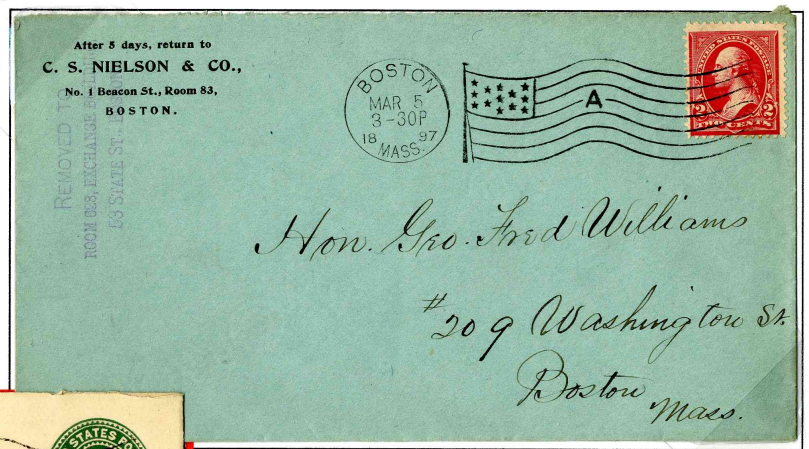 After 5 days, return to
C. S. NIELSON & CO.,
No. 1 Beacon St., Room 83,
BOSTON.
REMOVED TO
ROOM 628, EXCHANGE
53 STATE ST.
BOSTON
MAR 5
3-30P
18 97
MASS.
A
UNITED STATES POSTAGE
2 2
TWO CENTS
Hon. Geo. Fred Williams
#209 Washington St.
Boston
Mass.
STATES PO